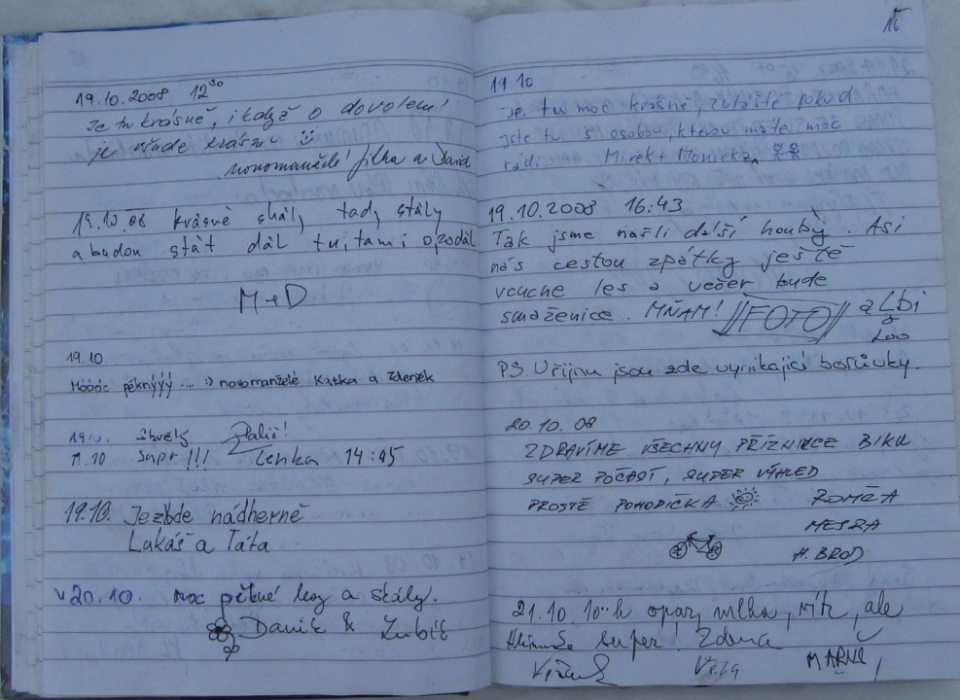 19.10.2008 12³⁰
Je tu krásně, i když o dovolení
je všude krásně
novomanželé Jitka a David
19.10.08 krásně skály, tady stály
a budou stát dál tu, tam i opodál
M+D
19.10
Móóóc pěknýýý ... :) novomanželé Katka a Zdeněk
19.10. Skvělý
19.10 Supr!!! Lenka 14:45
19.10. Je zde nádherně
Lukáš a Táta
20.10. moc pěkné lesy a skály.
Daník & Luboš
15
19.10
je tu moc krásně, zvláště pokud
jste tu s osobou, kterou máte moc
rádi. Mirek + Monička
19.10.2008 16:43
Tak jsme našli další houby. Asi
nás cestou zpátky ještě
vcucne les a večer bude
smaženice. MŇAM! //FOTO//
P.S. V říjnu jsou zde vynikající borůvky.
20.10.08
ZDRAVÍME VŠECHNY PŘÍZNIVCE BIKU
SUPER POČASÍ, SUPER VÝHLED
PROSTĚ POHODIČKA ROMČA
H. BROD
21.10. 10⁰⁰h opar, mlha, vítr, ale
super! Zdena